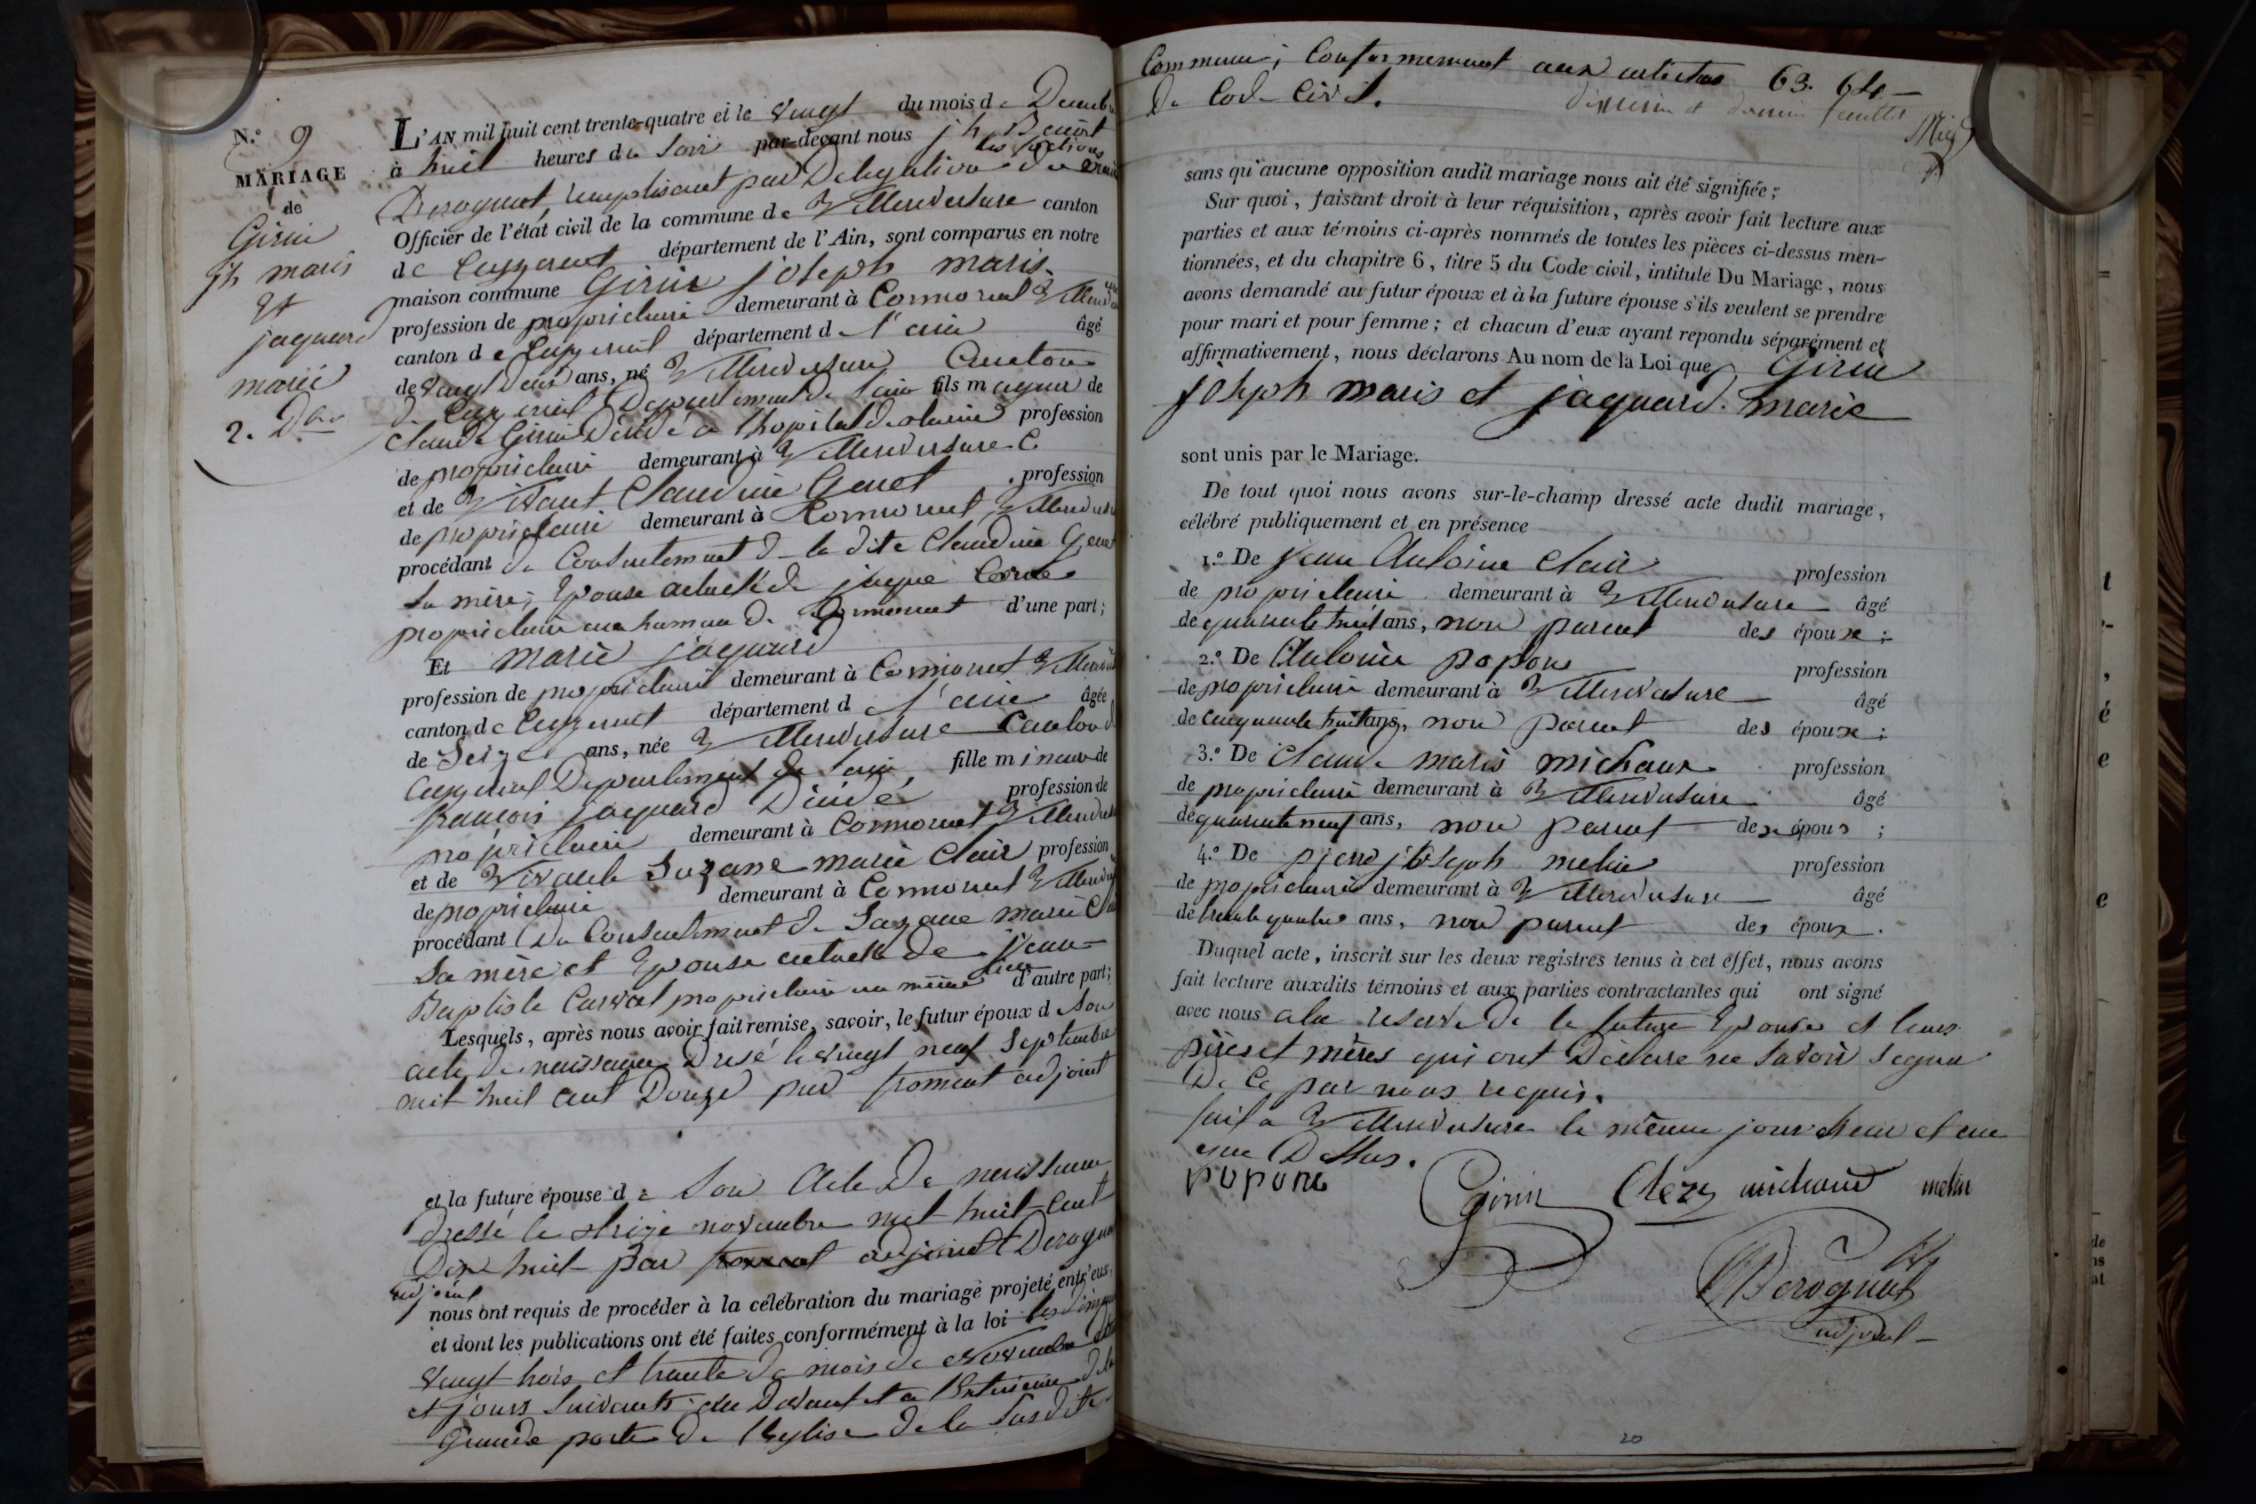 N.º 9
MARIAGE
de
Girin
jh marie
et
jaquard
marie
2. Dbre
L'AN mil huit cent trente-quatre et le vingt du mois de Decembre
à huit heures du soir par-devant nous jh Benoit
les fonctions
Derognat, remplissant par Delegation du maire
Officier de l'état civil de la commune de Villereversure canton
de Ceyzeriat département de l'Ain, sont comparus en notre
maison commune Girin joseph marie
profession de propriétaire demeurant à Cormorent Villereversure
canton de Ceyzeriat département de l'ain âgé
de vingt deux ans, né à Villereversure Canton
de Ceyzeriat Departement de l'ain fils majeur de
Claude Girin Décédé a l'hopital de profession
de propriétaire demeurant à Villereversure
et de Vivant Claudine Genet profession
de propriétaire demeurant à Cormorent Villereversure
procédant du Consentement de la dite Claudine Genet
sa mère; Epouse actuelle de jaque
propriétaire au hameau de Cormorent d'une part;
Et Marie jaquard
profession de propriétaire demeurant à Cormorent Villereversure
canton de Ceyzeriat département de l'ain âgée
de Seize ans, née à Villereversure Canton de
Ceyzeriat Departement de l'ain, fille mineure de
francois jaquard Décédé profession de
propriétaire demeurant à Cormorent Villereversure
et de Vivante Suzane marie Clair profession
de propriétaire demeurant à Cormorent Villereversure
procédant Du Consentement de Suzane marie Clair
Sa mère et Epouse actuelle de jean
Baptiste propriétaire au même lieu d'autre part;
Lesquels, après nous avoir fait remise, savoir, le futur époux de Son
acte de naissance Dressé le vingt neuf Septembre
mil huit cent Douze par froment adjoint
et la future épouse de Son Acte De naissance
dressé le treize novembre mil huit cent
Dix huit par froment adjoint Derognat
adjoint
nous ont requis de procéder à la célébration du mariage projeté entr'eux,
et dont les publications ont été faites conformément à la loi les dimanches
vingt trois et trente du mois de Novembre
et jours Suivants au Devant et a l'Exterieure de la
Grande porte De l'Eglise De la Susdite
Commune; Conformement aux articles 63. 64
Du Code Civil.
dixieme et dernier feuillet
sans qu'aucune opposition audit mariage nous ait été signifiée;
Sur quoi, faisant droit à leur réquisition, après avoir fait lecture aux
parties et aux témoins ci-après nommés de toutes les pièces ci-dessus men-
tionnées, et du chapitre 6, titre 5 du Code civil, intitulé Du Mariage, nous
avons demandé au futur époux et à la future épouse s'ils veulent se prendre
pour mari et pour femme; et chacun d'eux ayant repondu séparément et
affirmativement, nous déclarons Au nom de la Loi que Girin
joseph marie et jaquard. marie
sont unis par le Mariage.
De tout quoi nous avons sur-le-champ dressé acte dudit mariage,
célébré publiquement et en présence
1.º De Jean Antoine Clair profession
de propriétaire demeurant à Villereversure âgé
de quarante huit ans, non parent des époux;
2.º De Antoine popon profession
de propriétaire demeurant à Villereversure âgé
de cinquante huit ans, non parent des époux;
3.º De Claude marie michaux profession
de propriétaire demeurant à Villereversure âgé
de quarante neuf ans, non parent des époux;
4.º De pierre joseph melin profession
de propriétaire demeurant à Villereversure âgé
de trente quatre ans, non parent des époux.
Duquel acte, inscrit sur les deux registres tenus à cet effet, nous avons
fait lecture auxdits témoins et aux parties contractantes qui ont signé
avec nous a la reserve De la future Epouse et leurs
pères et mères qui ont Déclaré ne Savoir Signer
De Ce par nous requis.
fait a Villereversure le même jour et an
que Dessus.
popon Girin Clerc michaud melin
Derognat
adjoint
20